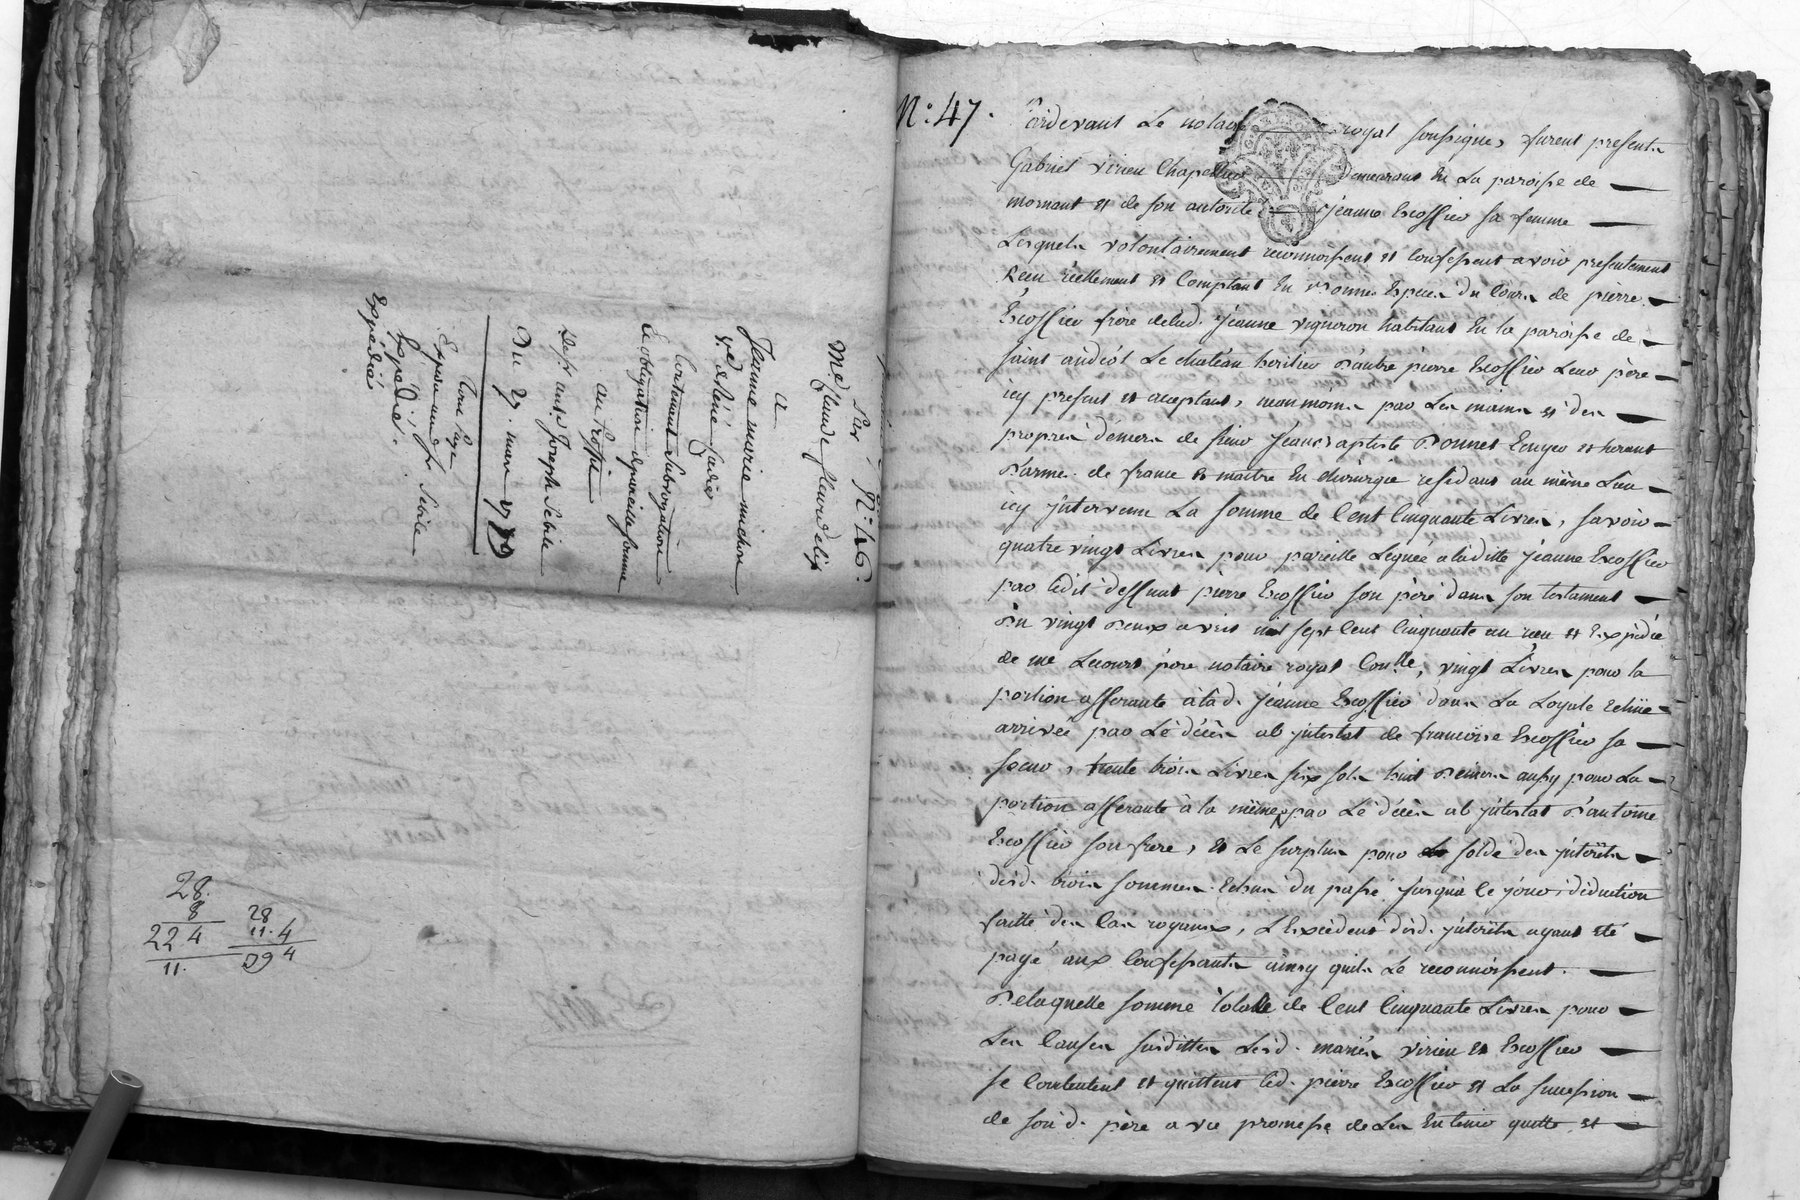 N.° 46.
Me fleurdelix
a
Jeanne marie michon
ve de René
Contenant Subrogation
et obligation de pareille somme
au proffit
de sr ant. Joseph Sebile
Du 27. mars 1779
Expédié.
Expédié
28
8
224
11.
28
11. 4
39 4
N.° 47.
Pardevant Le notaire royal soussigné, furent presents
Gabriel virieu Chapellier demeurant En La paroisse de
mornant et de son autorité Jeanne Escoffier sa femme
Lesquels volontairement reconnoissent et Confessent avoir presentement
Reçu réellement et Comptant En Bonnes Especes du Cours de pierre
Escoffier frère de lad. Jeanne vigneron habitant En la paroisse de
saint andéol Le chateau heritier d'autre pierre Escoffier Leur père
icy present et aceptant, neanmoins par Les mains et des
propres deniers de sieur Jean Baptiste Bonnet Ecuyer et herault
d'armes de france et maitre En chirurgie residant au même Lieu
icy jntervenu La somme de Cent Cinquante Livres, savoir
quatre vingt Livres pour pareille Leguée a laditte Jeanne Escoffier
par ledit deffunt pierre Escoffier son père dans son testament
du vingt deux avril mil sept Cent Cinquante un reçu et Expédié
de me Lecourt père notaire royal, vingt Livres pour la
portion afferante à lad. Jeanne Escoffier dans La Loyale Echüe
arrivée par Le décès ab jntestat de francoise Escoffier sa
soeur, trente trois Livres six sols huit deniers aussy pour La
portion afferante à la même par Le décès ab jntestat d'antoine
Escoffier son frere, et Le surplus pour solde des jnterêts
desd. trois sommes Echus du passé jusqu'a ce jour, déduction
faitte des Cas royaux, L'Excédent desd. jnterêts ayant eté
payé aux Confessants ainsy quils Le reconnoissent.
De laquelle somme totalle de Cent Cinquante Livres pour
Les Causes susdittes Lesd. mariés virieu et Escoffier
se Contentent et quittent led. pierre Escoffier et La succession
de sond. père avec promesse de Les En tenir quitte et